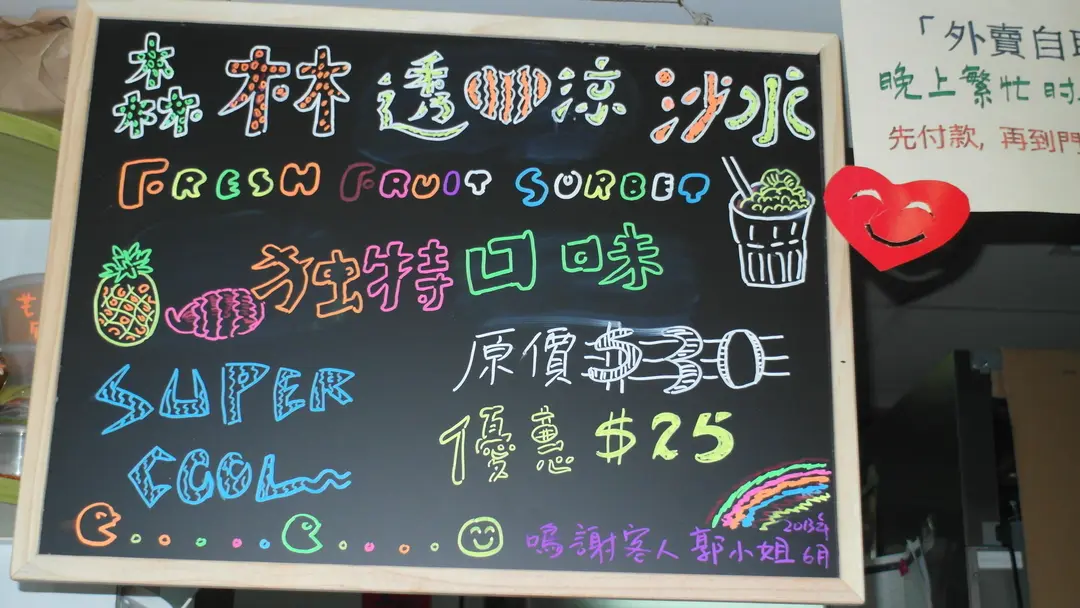 森林透心涼沙水
FRESH FRUIT SORBET
独特口味
原價$30
優惠$25
SUPER
COOL
2013年
鳴謝客人郭小姐 6月
「外賣自取
晚上繁忙時
先付款,再到門